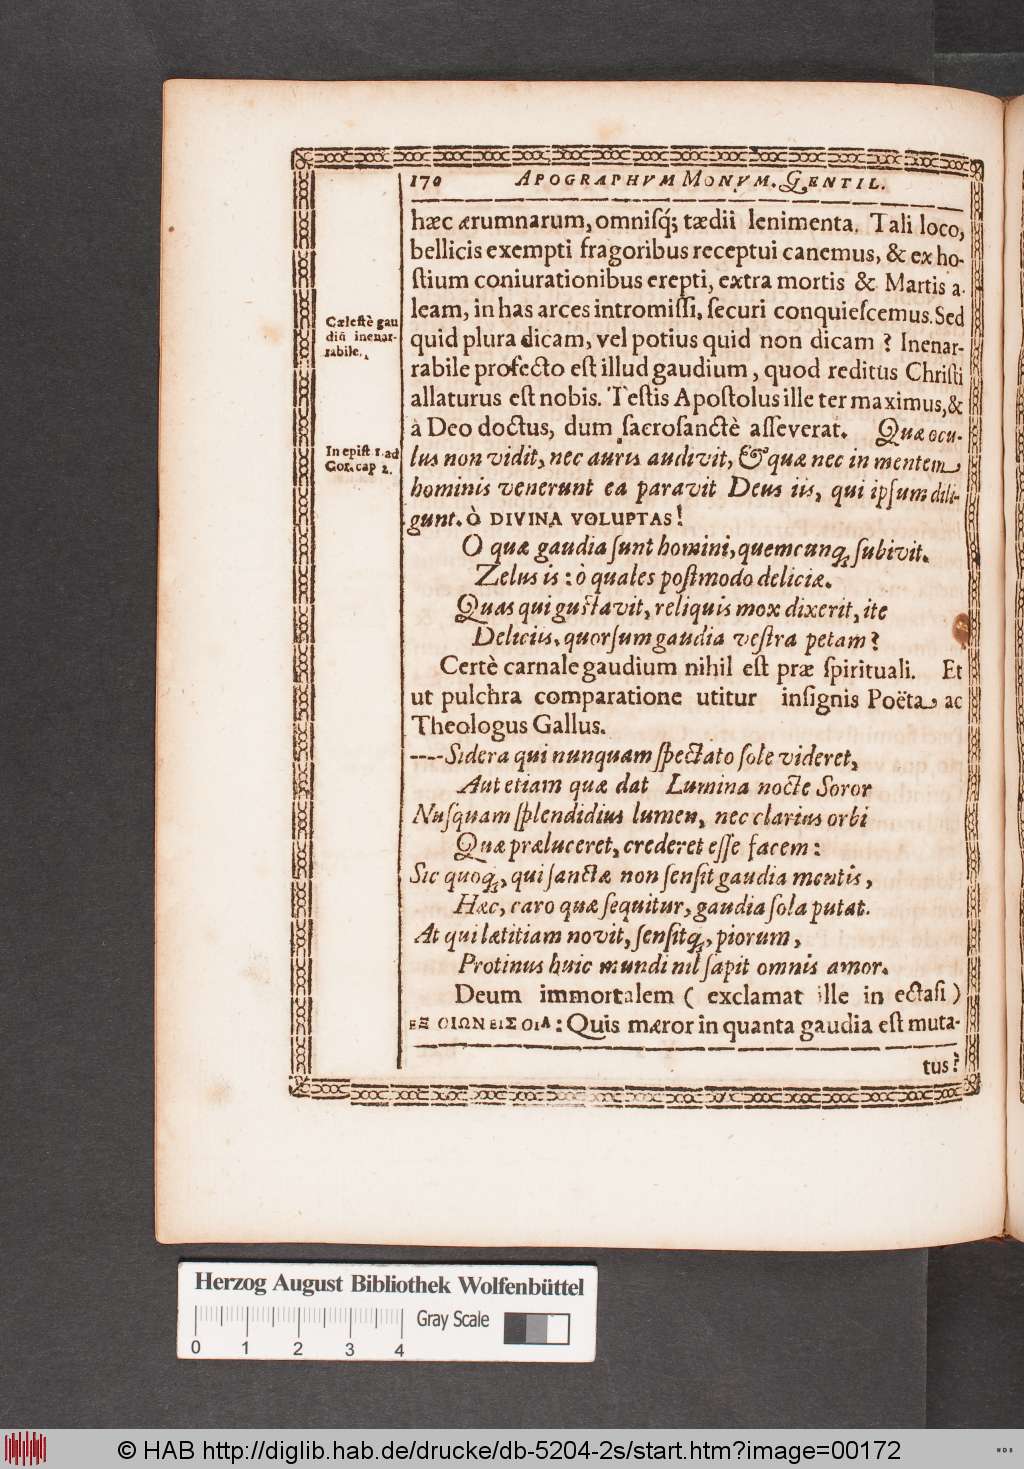 170 APOGRAPHVM MONVM. GENTIL.
hæc ærumnarum, omnisq́; tædii lenimenta. Tali loco,
bellicis exempti fragoribus receptui canemus, & ex ho-
stium coniurationibus erepti, extra mortis & Martis a-
leam, in has arces intromissi, securi conquiescemus. Sed
quid plura dicam, vel potius quid non dicam? Inenar-
rabile profecto est illud gaudium, quod reditus Christi
allaturus est nobis. Testis Apostolus ille ter maximus, &
à Deo doctus, dum sacrosanctè asseverat. Quæ ocu-
lus non vidit, nec auris audivit, & quæ nec in mentem
hominis venerunt ea paravit Deus iis, qui ipsum dili-
gunt. Ò DIVINA VOLUPTAS!
O quæ gaudia sunt homini, quemcunq; subivit.
Zelus is: ò quales postmodo deliciæ.
Quas qui gustavit, reliquis mox dixerit, ite
Deliciis, quorsum gaudia vestra petam?
Certè carnale gaudium nihil est præ spirituali. Et
ut pulchra comparatione utitur insignis Poëta ac
Theologus Gallus.
----Sidera qui nunquam spectato sole videret,
Aut etiam quæ dat Lumina nocte Soror
Nusquam splendidius lumen, nec clarius orbi
Quæ præluceret, crederet esse facem:
Sic quoq;, qui sanctæ non sensit gaudia mentis,
Hæc, caro quæ sequitur, gaudia sola putat.
At qui lætitiam novit, sensitq;, piorum,
Protinus huic mundi nil sapit omnis amor.
Deum immortalem ( exclamat ille in ectasi )
ΕΞ ΟΙΩΝ ΕΙΣ ΟΙΑ: Quis mæror in quanta gaudia est muta-
tus?
Cælestè gau
diū inenar-
rabile.
In epist 1. ad
Cor. cap 2.
Herzog August Bibliothek Wolfenbüttel
Gray Scale
0 1 2 3 4
© HAB http://diglib.hab.de/drucke/db-5204-2s/start.htm?image=00172
WDB